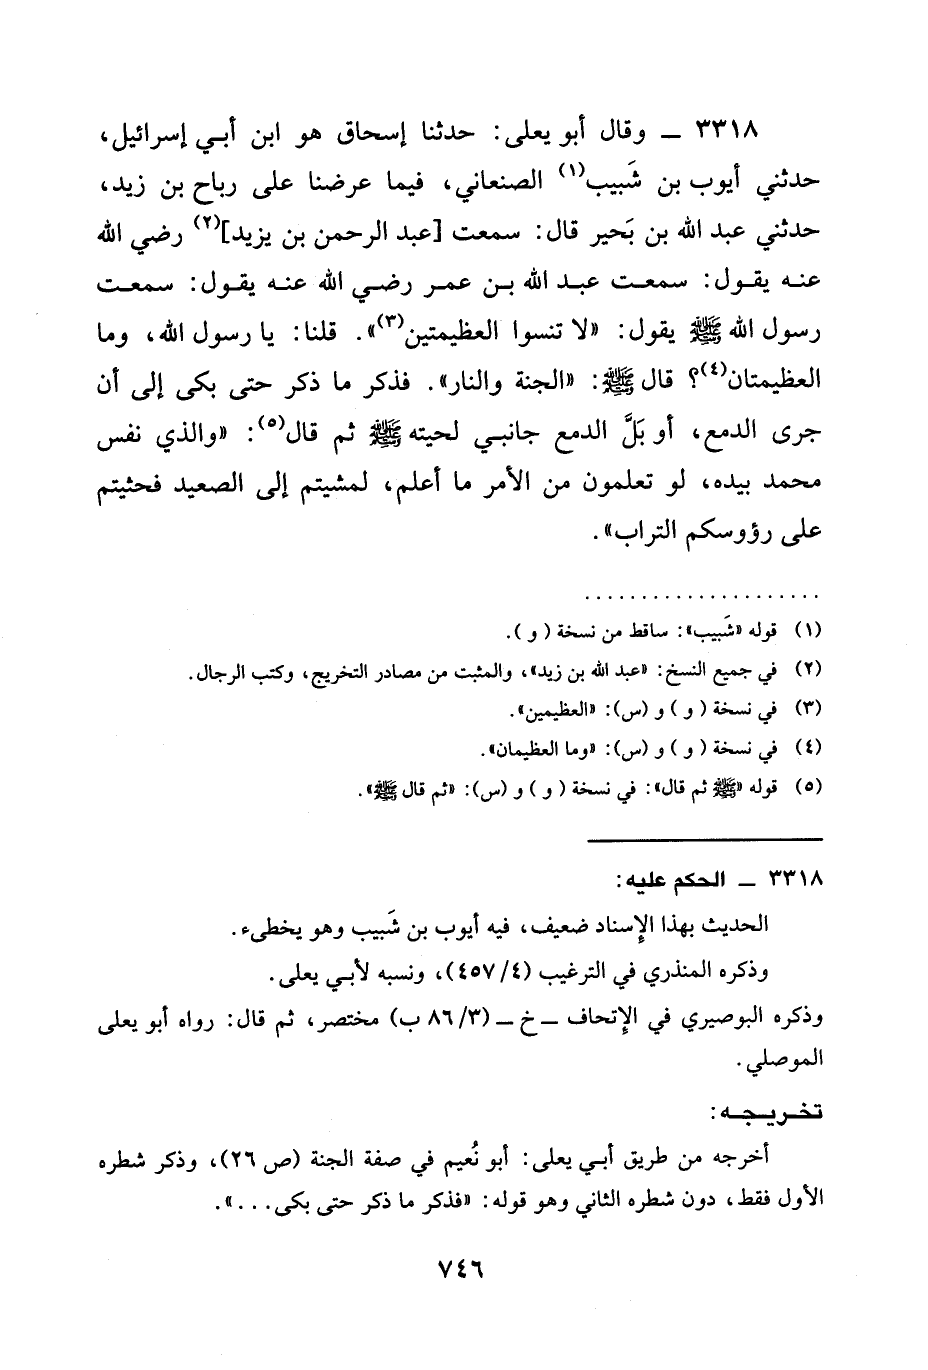 ٣٣١٨ ــ وقال أبو يعلى: حدثنا إسحاق هو ابن أبي إسرائيل،
حدثني أيوب بن شَبيب(١) الصنعاني، فيما عرضنا على رباح بن زيد،
حدثني عبد الله بن بَحير قال: سمعت [عبد الرحمن بن يزيد](٢) رضي الله
عنه يقول: سمعت عبد الله بن عمر رضي الله عنه يقول: سمعت
رسول الله ﷺ يقول: «لا تنسوا العظيمتين(٣)». قلنا: يا رسول الله، وما
العظيمتان(٤)؟ قال ﷺ: «الجنة والنار». فذكر ما ذكر حتى بكى إلى أن
جرى الدمع، أو بَلَّ الدمع جانبي لحيته ﷺ ثم قال(٥): «والذي نفس
محمد بيده، لو تعلمون من الأمر ما أعلم، لمشيتم إلى الصعيد فحثيتم
على رؤوسكم التراب».
. . . . . . . . . . . . . . . . . . . .
(١) قوله «شَبيب»: ساقط من نسخة ( و ).
(٢) في جميع النسخ: «عبد الله بن زيد»، والمثبت من مصادر التخريج، وكتب الرجال.
(٣) في نسخة ( و ) و (س): «العظيمين».
(٤) في نسخة ( و ) و (س): «وما العظيمان».
(٥) قوله «ﷺ ثم قال»: في نسخة ( و ) و (س): «ثم قال ﷺ».
٣٣١٨ ــ الحكم عليه:
الحديث بهذا الإسناد ضعيف، فيه أيوب بن شَبيب وهو يخطىء.
وذكره المنذري في الترغيب (٤/ ٤٥٧)، ونسبه لأبي يعلى.
وذكره البوصيري في الإتحاف ــ خ ــ (٣/ ٨٦ ب) مختصر، ثم قال: رواه أبو يعلى
الموصلي.
تخريجه:
أخرجه من طريق أبي يعلى: أبو نُعيم في صفة الجنة (ص ٢٦)، وذكر شطره
الأول فقط، دون شطره الثاني وهو قوله: «فذكر ما ذكر حتى بكى. . .».
٧٤٦